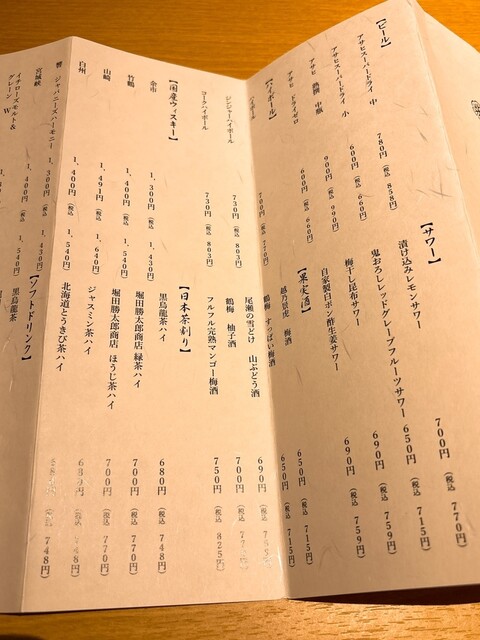 【ビール】
アサヒスーパードライ 中 780円（税込 858円）
アサヒスーパードライ 小 600円（税込 660円）
アサヒ 熟撰 中瓶 900円（税込 990円）
アサヒ ドライゼロ 600円（税込 660円）
【ハイボール】
ハイボール 700円（税込 770円）
ジンジャーハイボール 730円（税込 803円）
コークハイボール 730円（税込 803円）
【国産ウィスキー】
余市 1,300円（税込 1,430円）
竹鶴 1,400円（税込 1,540円）
山崎 1,491円（税込 1,640円）
白州 1,400円（税込 1,540円）
響 ジャパニーズハーモニー 1,300円（税込 1,430円）
宮城峡 1,400円（税込 1,540円）
イチローズモルト＆
グレーン
【サワー】
漬け込みレモンサワー 700円（税込 770円）
鬼おろしレッドグレープフルーツサワー 650円（税込 715円）
梅干し昆布サワー 690円（税込 759円）
自家製白ポン酢生姜サワー 690円（税込 759円）
【果実酒】
越乃景虎 梅酒 650円（税込 715円）
鶴梅 すっぱい梅酒 650円（税込 715円）
尾瀬の雪どけ 山ぶどう酒 690円（税込
鶴梅 柚子酒 700円（税込
フルフル完熟マンゴー梅酒 750円（税込 825円）
【日本茶割り】
黒烏龍茶ハイ 680円（税込 748円）
堀田勝太郎商店 緑茶ハイ 700円（税込 770円）
堀田勝太郎商店 ほうじ茶ハイ 700円（税込 770円）
ジャスミン茶ハイ 680円（税込 748円）
北海道とうきび茶ハイ 680円（税込 748円）
【ソフトドリンク】
黒烏龍茶